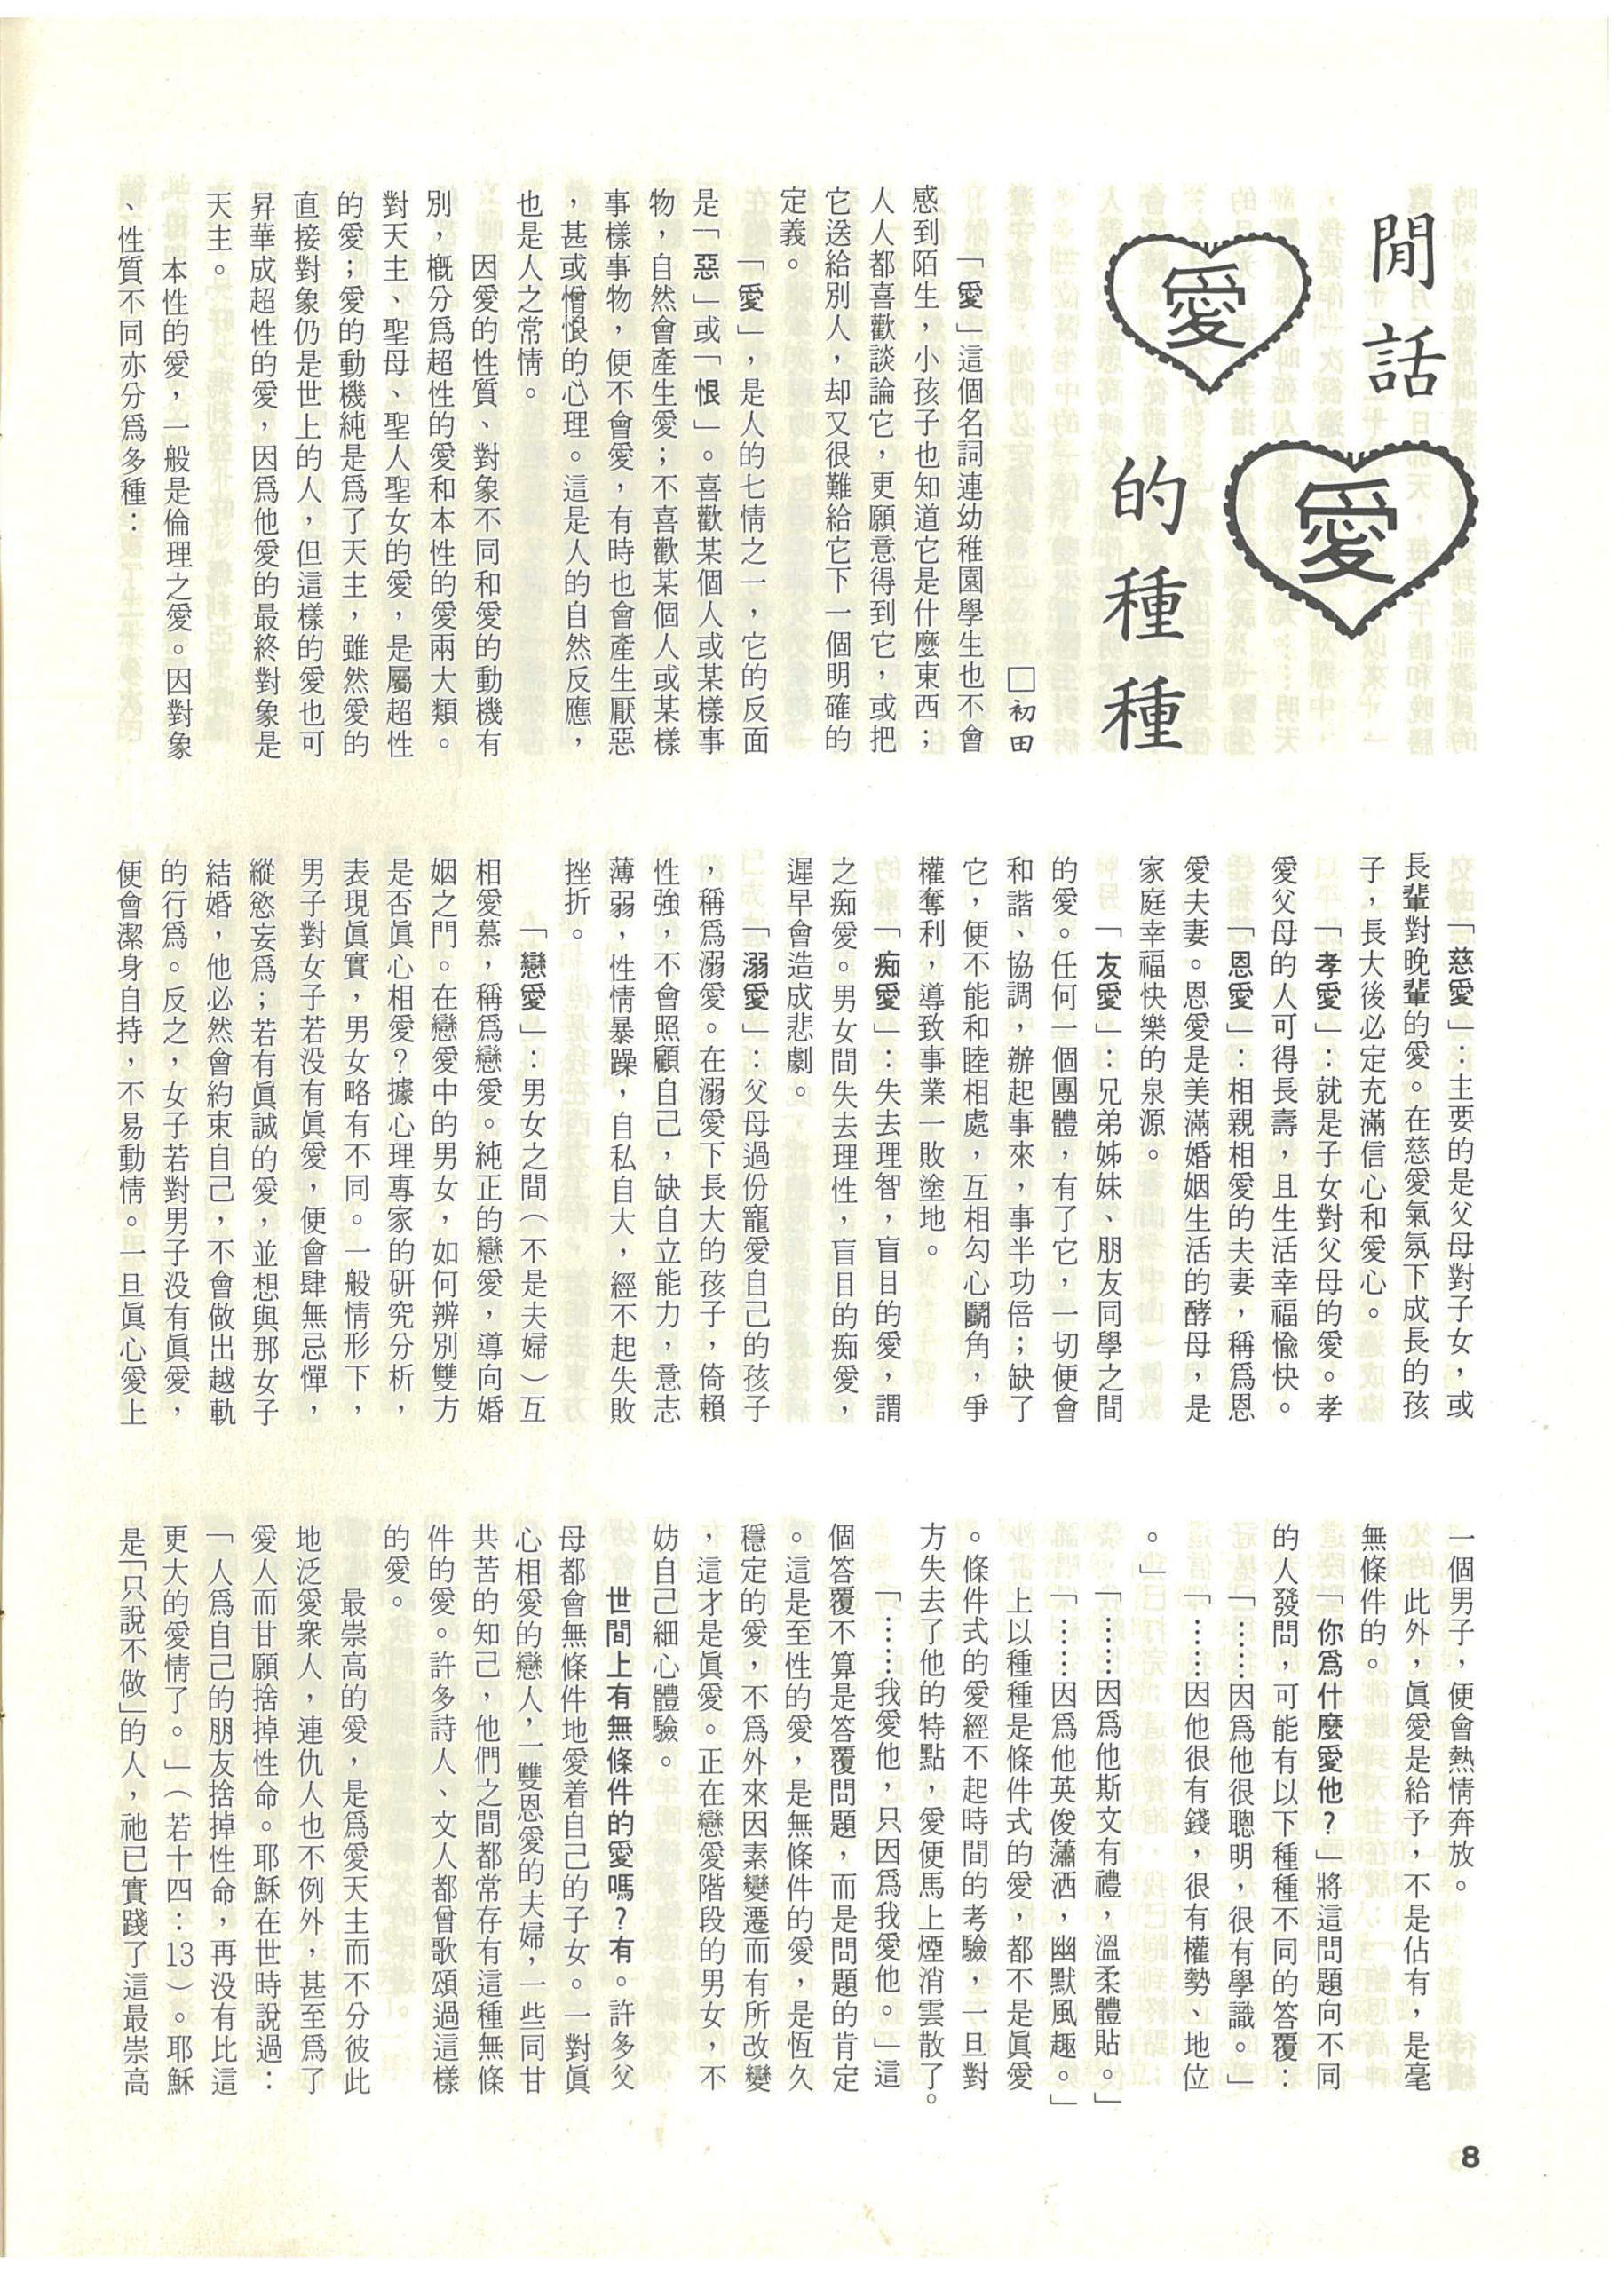 閒話
愛
愛
的種種
□初田
「愛」這個名詞連幼稚園學生也不會
感到陌生，小孩子也知道它是什麼東西；
人人都喜歡談論它，更願意得到它，或把
它送給別人，却又很難給它下一個明確的
定義。
「愛」，是人的七情之一，它的反面
是「惡」或「恨」。喜歡某個人或某樣事
物，自然會產生愛；不喜歡某個人或某樣
事樣事物，便不會愛，有時也會產生厭惡
，甚或憎恨的心理。這是人的自然反應，
也是人之常情。
因愛的性質、對象不同和愛的動機有
別，概分爲超性的愛和本性的愛兩大類。
對天主、聖母、聖人聖女的愛，是屬超性
的愛；愛的動機純是爲了天主，雖然愛的
直接對象仍是世上的人，但這樣的愛也可
昇華成超性的愛，因爲他愛的最終對象是
天主。
本性的愛，一般是倫理之愛。因對象
、性質不同亦分爲多種：
「慈愛」：主要的是父母對子女，或
長輩對晚輩的愛。在慈愛氣氛下成長的孩
子，長大後必定充滿信心和愛心。
「孝愛」：就是子女對父母的愛。孝
愛父母的人可得長壽，且生活幸福愉快。
「恩愛」：相親相愛的夫妻，稱爲恩
愛夫妻。恩愛是美滿婚姻生活的酵母，是
家庭幸福快樂的泉源。
「友愛」：兄弟姊妹、朋友同學之間
的愛。任何一個團體，有了它，一切便會
和諧、協調，辦起事來，事半功倍；缺了
它，便不能和睦相處，互相勾心鬭角，爭
權奪利，導致事業一敗塗地。
「痴愛」：失去理智，盲目的愛，謂
之痴愛。男女間失去理性，盲目的痴愛，
遲早會造成悲劇。
「溺愛」：父母過份寵愛自己的孩子
，稱爲溺愛。在溺愛下長大的孩子，倚賴
性強，不會照顧自己，缺自立能力，意志
薄弱，性情暴躁，自私自大，經不起失敗
挫折。
「戀愛」：男女之間（不是夫婦）互
相愛慕，稱爲戀愛。純正的戀愛，導向婚
姻之門。在戀愛中的男女，如何辨別雙方
是否眞心相愛？據心理專家的研究分析，
表現眞實，男女略有不同。一般情形下，
男子對女子若没有眞愛，便會肆無忌憚，
縱慾妄爲；若有眞誠的愛，並想與那女子
結婚，他必然會約束自己，不會做出越軌
的行爲。反之，女子若對男子没有眞愛，
便會潔身自持，不易動情。一旦眞心愛上
一個男子，便會熱情奔放。
此外，眞愛是給予，不是佔有，是毫
無條件的。
「你爲什麼愛他？」將這問題向不同
的人發問，可能有以下種種不同的答覆：
「……因爲他很聰明，很有學識。」
「……因他很有錢，很有權勢、地位
。」
「……因爲他斯文有禮，溫柔體貼。」
「……因爲他英俊瀟洒，幽默風趣。」
上以種種是條件式的愛，都不是眞愛
。條件式的愛經不起時間的考驗，一旦對
方失去了他的特點，愛便馬上煙消雲散了。
「……我愛他，只因爲我愛他。」這
個答覆不算是答覆問題，而是問題的肯定
。這是至性的愛，是無條件的愛，是恆久
穩定的愛，不爲外來因素變遷而有所改變
，這才是眞愛。正在戀愛階段的男女，不
妨自己細心體驗。
世間上有無條件的愛嗎？有。許多父
母都會無條件地愛着自己的子女。一對眞
心相愛的戀人，一雙恩愛的夫婦，一些同甘
共苦的知己，他們之間都常存有這種無條
件的愛。許多詩人、文人都曾歌頌過這樣
的愛。
最崇高的愛，是爲愛天主而不分彼此
地泛愛衆人，連仇人也不例外，甚至爲了
愛人而甘願捨掉性命。耶穌在世時說過：
「人爲自己的朋友捨掉性命，再没有比這
更大的愛情了。」（若十四：13）。耶穌
是「只說不做」的人，祂已實踐了這最崇高
8